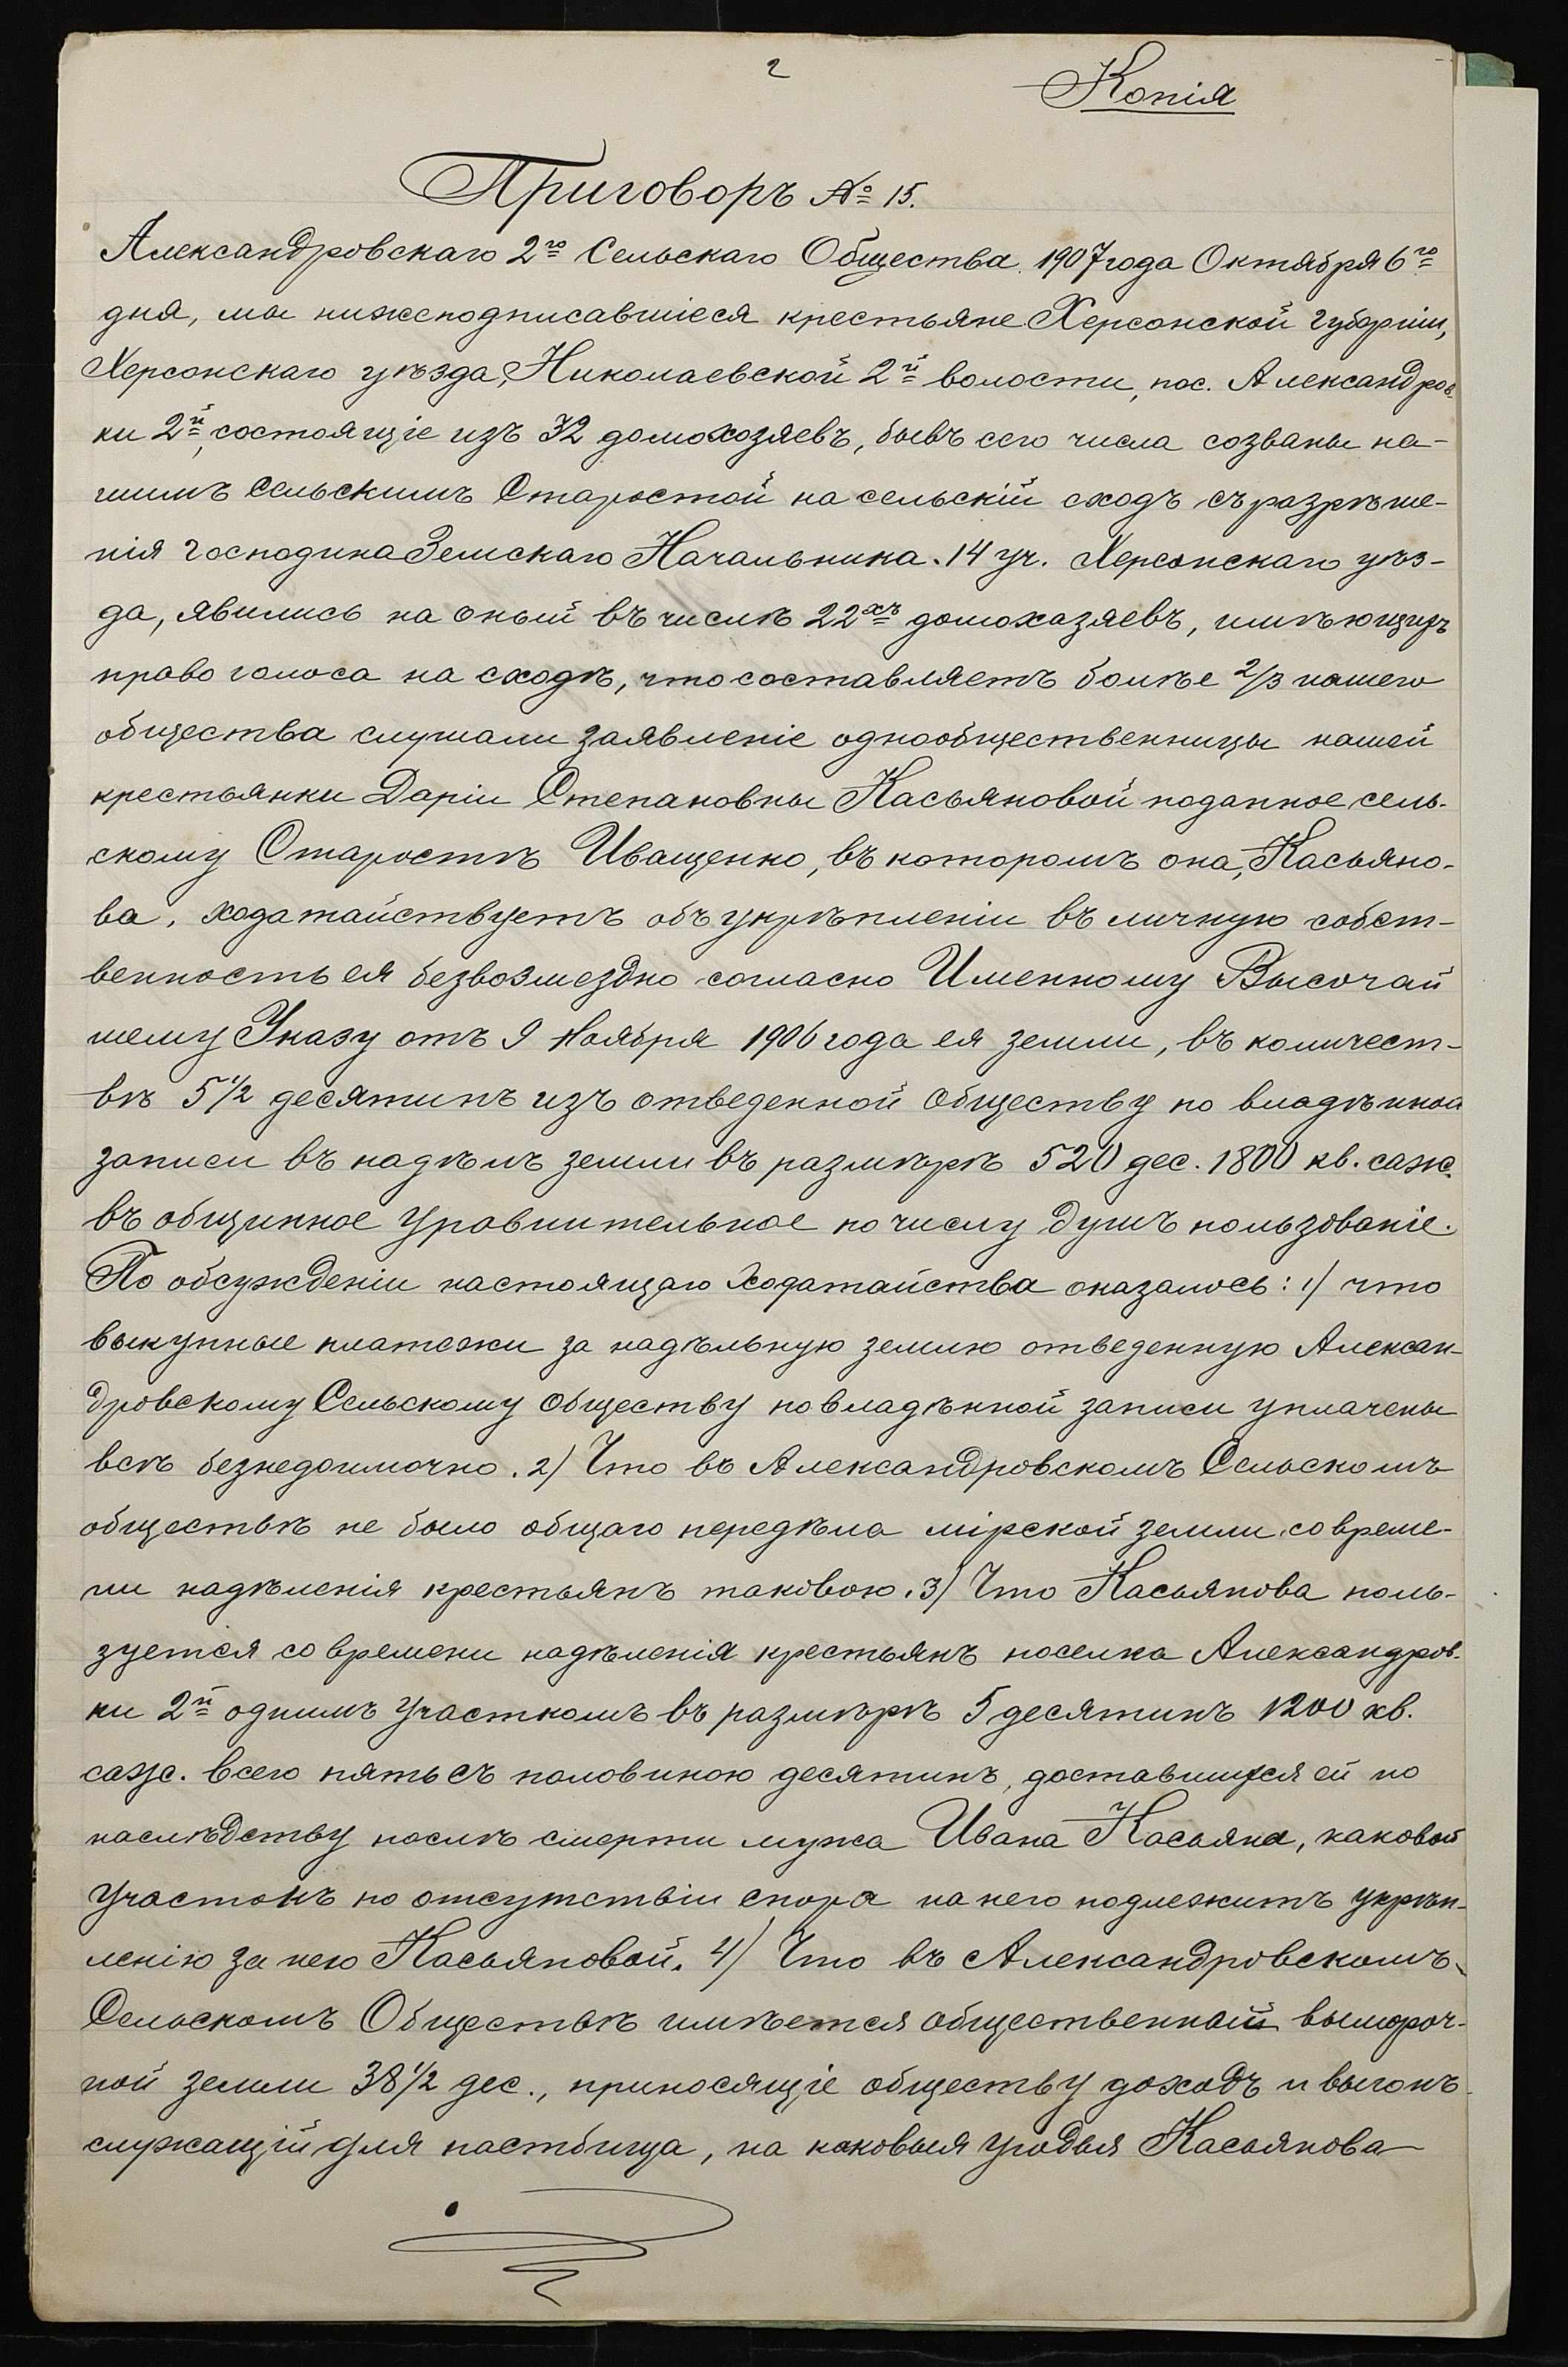 2
Копія
Приговоръ № 15.
Александровскаго 2го Сельскаго Общества. 1907 года Октября 6го
дня, мы нижеподписавшіеся крестьяне Херсонской губерніи,
Херсонскаго уѣзда, Николаевской 2й волости, пос. Александров-
ки 2й, состоящіе изъ 32 домохозяевъ, бывъ сего числа созваны на-
шимъ Сельскимъ Старостой на сельскій сходъ съ разрѣше-
нія Господина Земскаго Начальника. 14 уч. Херсонскаго уѣз-
да, явились на оный въ числѣ 22хъ домохазяевъ, имѣющихъ
право голоса на сходѣ, что составляетъ болѣе 2/3 нашего
общества слушали заявленіе однообщественницы нашей
крестьянки Даріи Степановны Касьяновой поданное сель-
скому Старостѣ Иващенко, въ которомъ она, Касьяно-
ва, ходатайствуетъ объ укрѣпленіи въ личную собст-
венность ея безвозмездно согласно Именному Высочай
шему Указу отъ 9 Ноября 1906 года ея земли, въ количест-
вѣ 5 1/2 десятинъ изъ отведенной Обществу по владѣнной
записи въ надѣлъ земли въ размѣрѣ 520 дес. 1800 кв. саж.
въ общинное уравнительное по числу душъ пользованіе.
По обсужденіи настоящаго ходатайства оказалось: 1) что
выкупные платежи за надѣльную землю отведенную Алексан-
дровскому Сельскому Обществу по владѣнной записи уплачены
всѣ безнедоимочно. 2) Что въ Александровскомъ Сельскомъ
обществѣ не было общаго передѣла мірской земли со време-
ни надѣленія крестьянъ таковою. 3) Что Касьянова поль-
зуется со времени надѣленія крестьянъ поселка Александров-
ки 2й однимъ участкомъ въ размѣрѣ 5 десятинъ 1200 кв.
саж. всего пять съ половиною десятинъ, доставшихся ей по
наслѣдству послѣ смерти мужа Ивана Касьяна, каковой
участокъ по отсутствіи спора на него подлежитъ укрѣп-
ленію за нею Касьяновой. 4) Что въ Александровскомъ
Сельскомъ Обществѣ имѣется общественной вымороч-
ной земли 38 1/2 дес., приносящіе обществу доходъ и выгонъ
служащій для пастбища, на каковыя угодья Касьянова